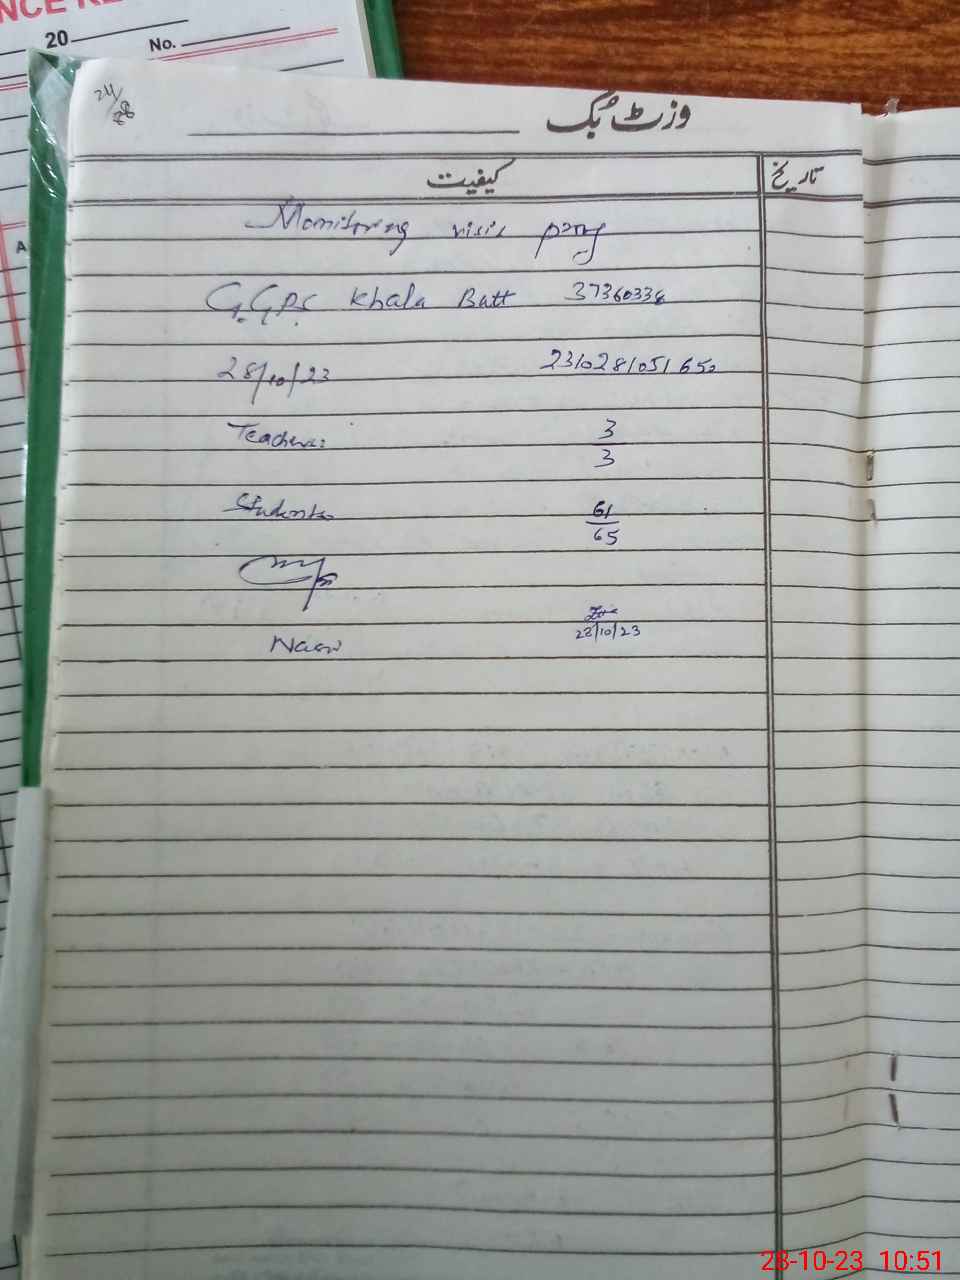 20 No.
24/28
وزٹ بُک
کیفیت تاریخ
Monitoring visit
G.G.P.S Khala Batt 37360338
28/10/23 231028105165
Teachers: 3/3
Students 61/65
28/10/23
28-10-23 10:51